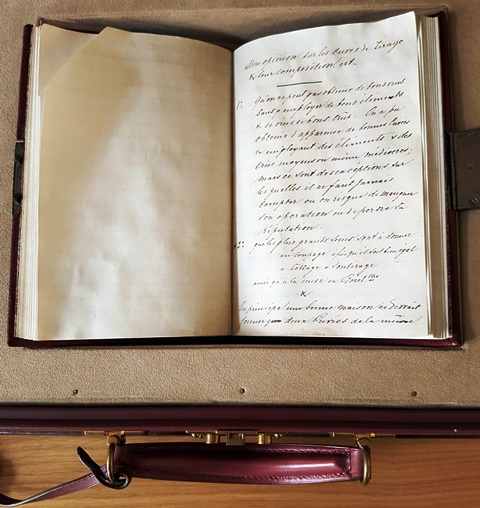 Mon opinion sur les cuvées de tirage
& leur composition, est
1° Qu'on ne peut pas obtenir de bons vins
sans employer de bons éléments
& de vins de bons crûs. On a pu
obtenir l'apparence de bonnes cuvées
en employant des éléments & des
crûs moyens ou même médiocres;
mais ce sont des exceptions sur
lesquelles il ne faut jamais
compter ou on risque de manquer
son opération ou de perdre sa
réputation.
2° que les plus grands soins sont à donner
au coupage ainsi qu'il soit bien égal
au collage & soutirage
jusqu'à la mise en Bout^lles
&
En principe une bonne maison ne devrait
former que deux cuvées de la même